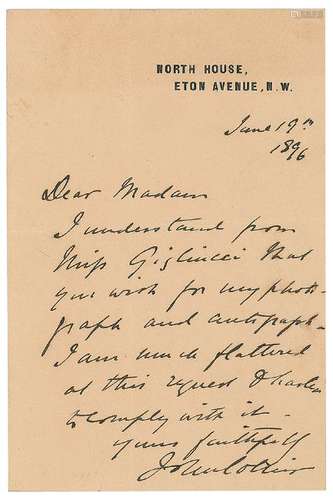 NORTH HOUSE,
ETON AVENUE, N.W.
June 19th
1896
Dear Madam
I understand from
Miss Gigliucci that
you wish for my photo-
graph and autograph -
I am much flattered
at this request & hasten
to comply with it -
yours faithfully
John Collier